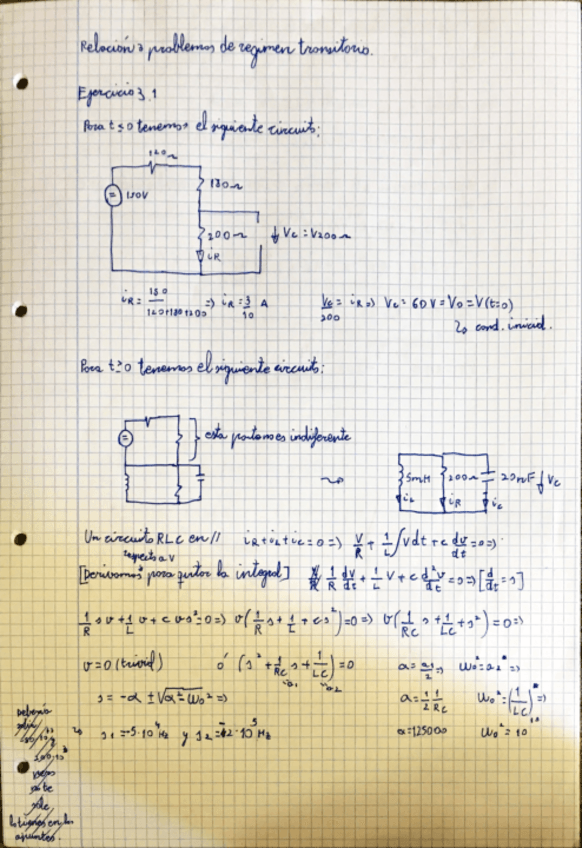 Relación 3 problemas de regimen transitorio.
Ejercicio 3.1
Para t≤0 tenemos el siguiente circuito:
120Ω
180Ω
150V
200Ω
↓ Vc = V200Ω
iR
iR = 150/(120+180+200) => iR = 3/10 A
Vc/200 = iR => Vc = 60V = V0 = V(t=0)
↳ cond. inicial.
Para t≥0 tenemos el siguiente circuito:
} esta parte nos es indiferente
5mH 200Ω 20nF ↓ Vc
iL iR ic
Un circuito RLC en // iR + iL + ic = 0 => V/R + 1/L ∫vdt + c dv/dt = 0 =>
respecto a V
[Derivamos para quitar la integral] 1/R dv/dt + 1/L V + c d²v/dt = 0 => [d/dt = s]
1/R sv + 1/L v + c v s² = 0 => v(1/R s + 1/L + cs²) = 0 => v(1/RC s + 1/LC + s²) = 0 =>
v = 0 (trivial) ó (s² + 1/RC s + 1/LC) = 0 α = a1/2 => ω0² = a2 =>
a1 a2
s = -α ± √α² - ω0² => α = 1/2 1/RC ω0² = (1/LC) =>
s1 = -5·10⁴ Hz y s2 = -2·10⁵ Hz α = 125000 ω0² = 10¹⁰
Deberia
salir
este
sale
lo tienes en los
apuntes.